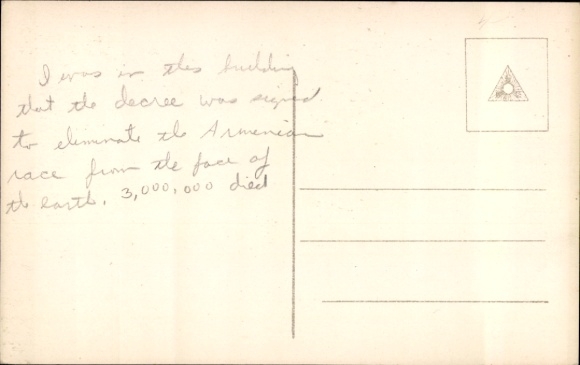 I was in this building
that the decree was signed
to eliminate the Armenian
race from the face of
the earth. 3,000,000 died